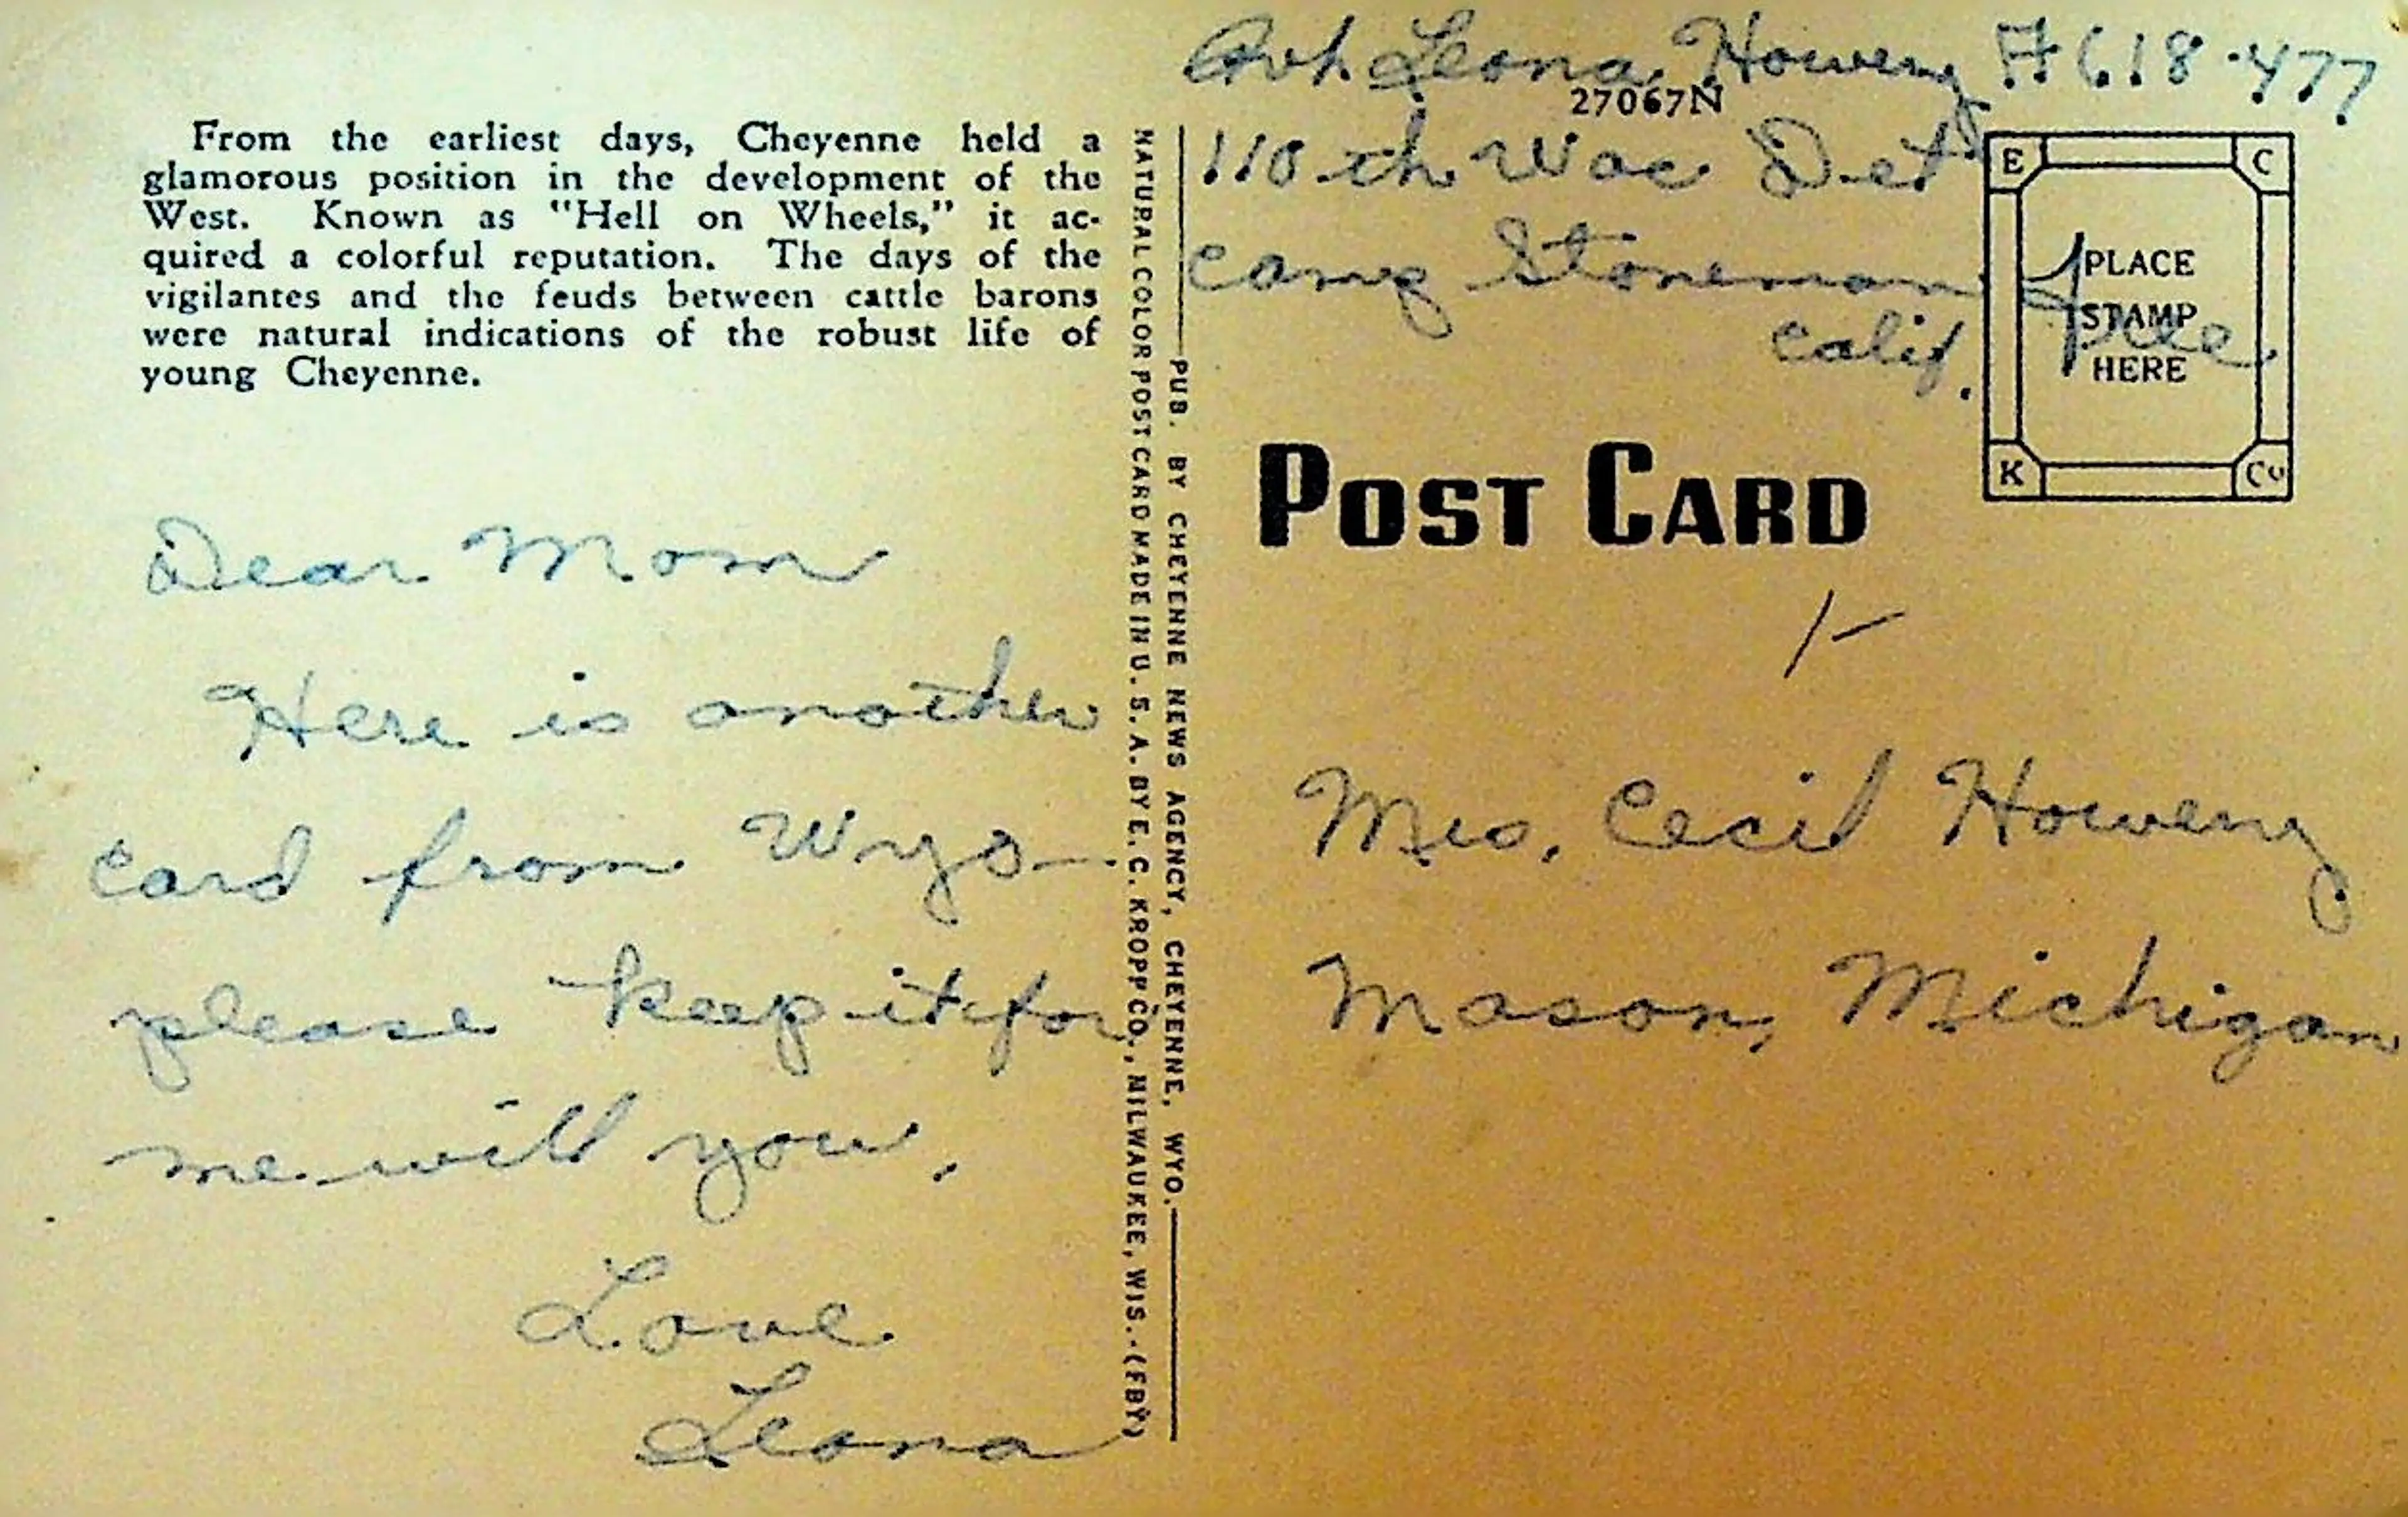 From the earliest days, Cheyenne held a
glamorous position in the development of the
West. Known as "Hell on Wheels," it ac-
quired a colorful reputation. The days of the
vigilantes and the feuds between cattle barons
were natural indications of the robust life of
young Cheyenne.
Dear Mom
Here is another
card from Wyo.
please keep it for
me will you.
Love
Leona
NATURAL COLOR POST CARD MADE IN U. S. A. BY E. C. KROPP CO., MILWAUKEE, WIS.-(FBY)
PUB. BY CHEYENNE NEWS AGENCY, CHEYENNE, WYO.
Leona Koweny A618-477
27067N
110th Wac Det
Camp Stoneman
Calif.
Free
E C
PLACE
STAMP
HERE
K Co
POST CARD
Mrs. Cecil Howeny
Mason, Michigan